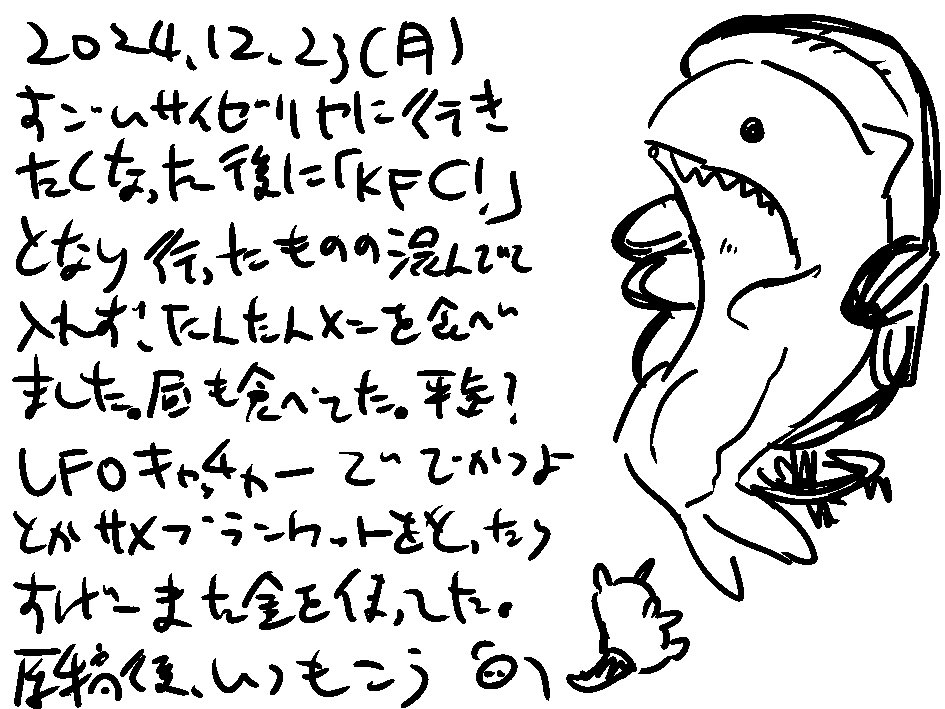 2024.12.23(月)
すごいサイゼリヤに行き
たくなった後に「KFC!」
となり行ったものの混んでて
入れず、たんたんメンを食べ
ました。昼も食べてた。平気?
UFOキャッチャーででかつよ
とかサメブランケットをとったり
すげーまた金を使ってた。
原稿後、いつもこう